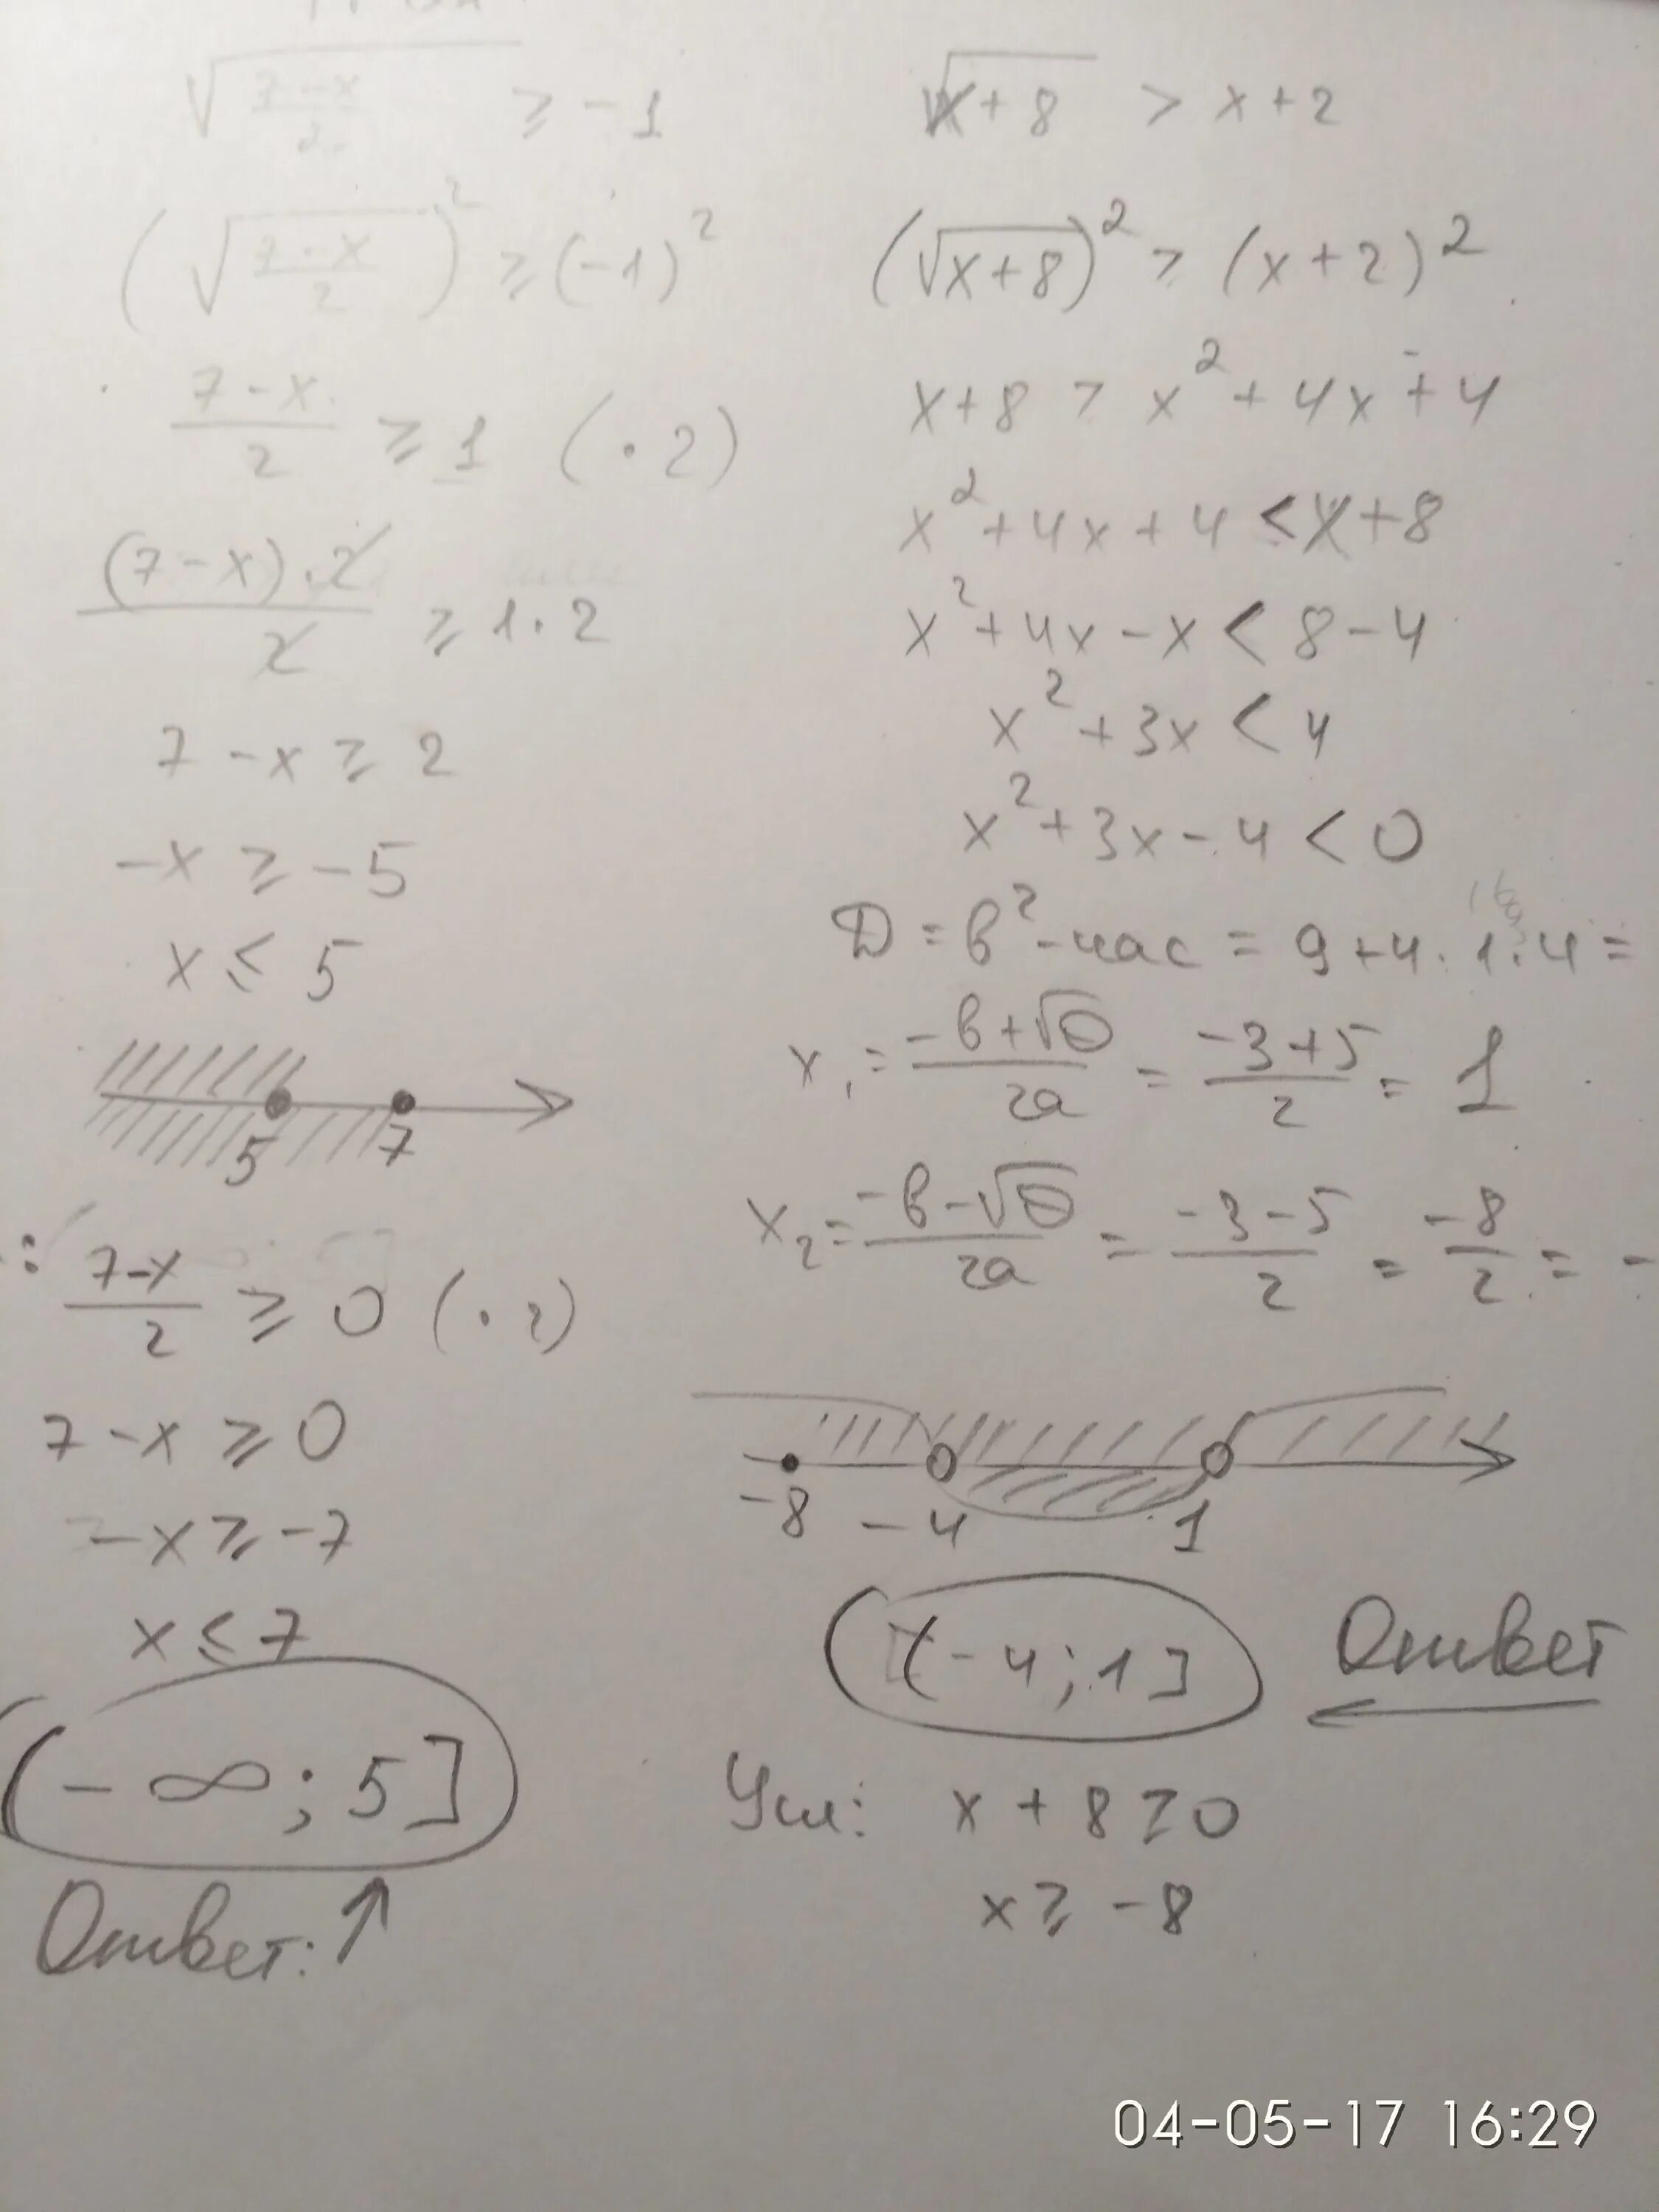 √((7-x)/2) ≥ -1
(√((7-x)/2))² ≥ (-1)²
(7-x)/2 ≥ 1 (·2)
((7-x)·2)/2 ≥ 1·2
7-x ≥ 2
-x ≥ -5
x ≤ 5
5 7
: (7-x)/2 ≥ 0 (·2)
7-x ≥ 0
-x ≥ -7
x ≤ 7
(-∞; 5]
Ответ: ↑
√(x+8) > x+2
(√(x+8))² > (x+2)²
x+8 > x²+4x+4
x²+4x+4 < x+8
x²+4x-x < 8-4
x²+3x < 4
x²+3x-4 < 0
D = b²-4ac = 9+4·1·4 =
x₁ = (-b+√D)/2a = (-3+5)/2 = 1
x₂ = (-b-√D)/2a = (-3-5)/2 = -8/2 = -
-8 -4 1
(-4; 1] Ответ
Усл: x+8 ≥ 0
x ≥ -8
04-05-17 16:29